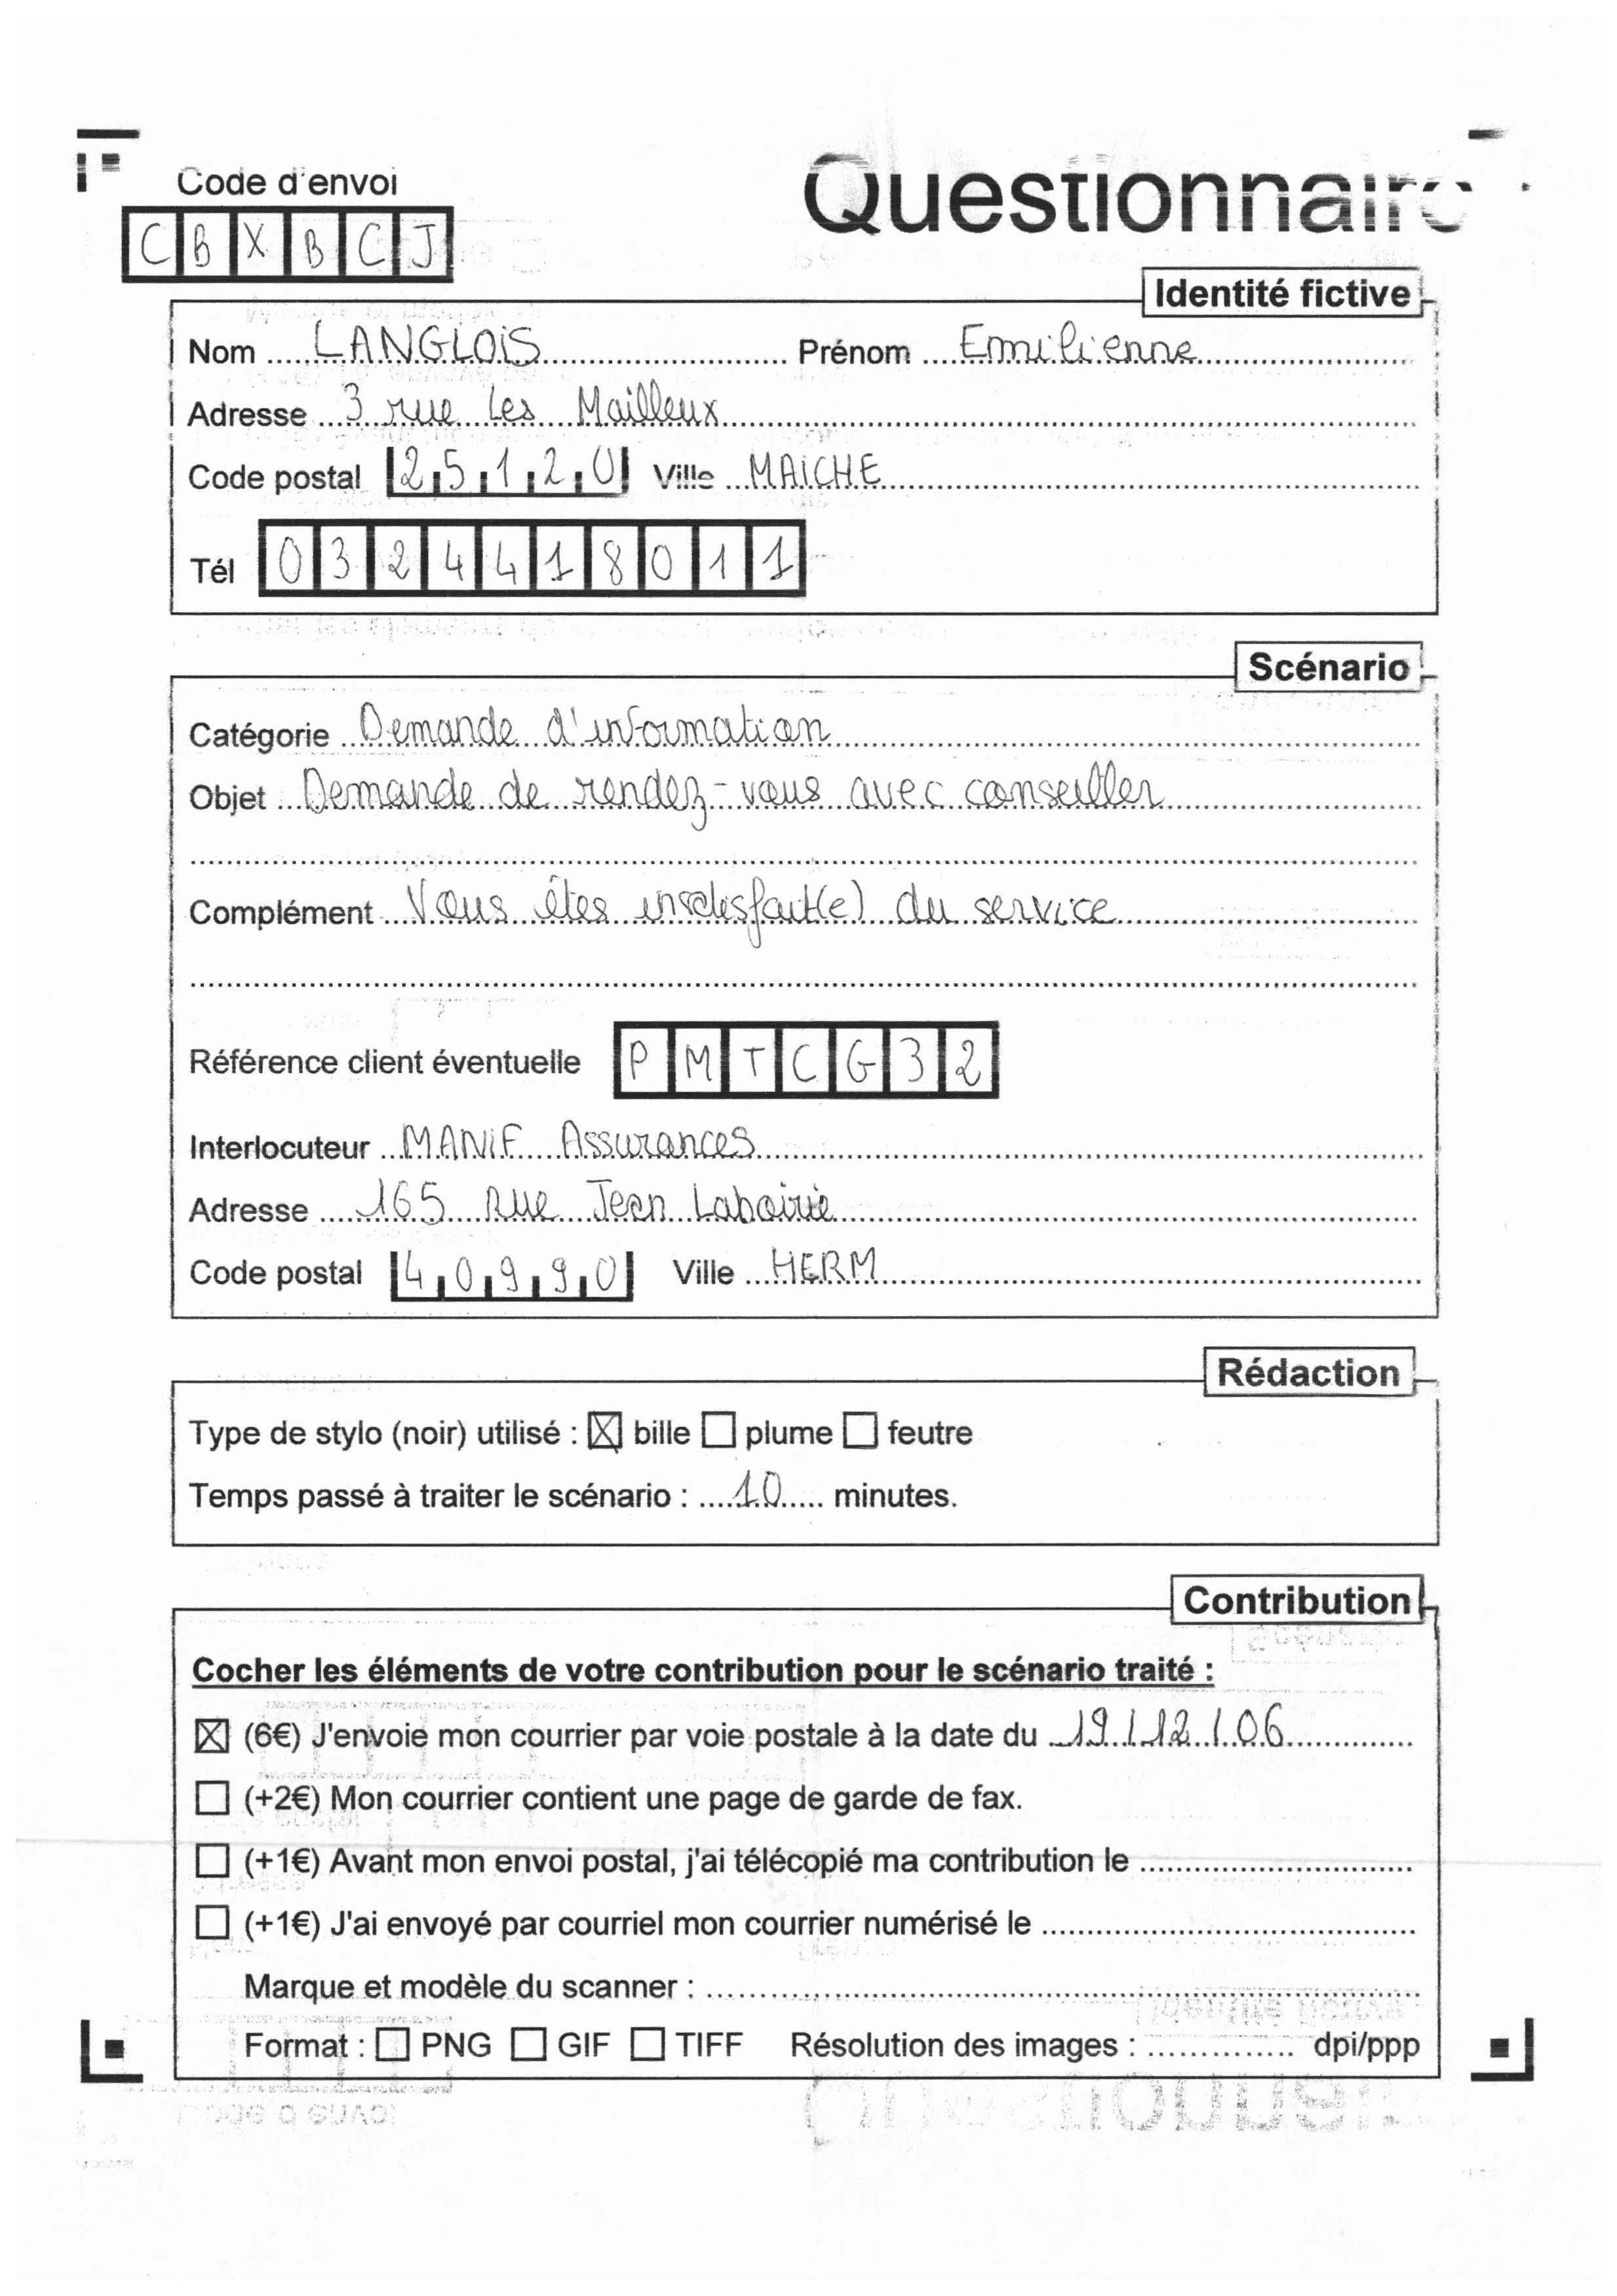 Code d'envoi
Questionnaire
CBXBCJ
Identité fictive
Nom LANGLOIS Prénom Emilienne
Adresse 3 rue Les Mailleux
Code postal 25120 Ville MAICHE
Tél 0324418011
Scénario
Catégorie Demande d'information
Objet Demande de rendez-vous avec conseiller
Complément Vous êtes insatisfait(e) du service
Référence client éventuelle PMTCG32
Interlocuteur MANIF Assurances
Adresse 165 Rue Jean Labairie
Code postal 40990 Ville HERM
Rédaction
Type de stylo (noir) utilisé : ☒ bille ☐ plume ☐ feutre
Temps passé à traiter le scénario : 10 minutes.
Contribution
Cocher les éléments de votre contribution pour le scénario traité :
☒ (6€) J'envoie mon courrier par voie postale à la date du 19/12/06
☐ (+2€) Mon courrier contient une page de garde de fax.
☐ (+1€) Avant mon envoi postal, j'ai télécopié ma contribution le
☐ (+1€) J'ai envoyé par courriel mon courrier numérisé le
Marque et modèle du scanner :
Format : ☐ PNG ☐ GIF ☐ TIFF Résolution des images : dpi/ppp